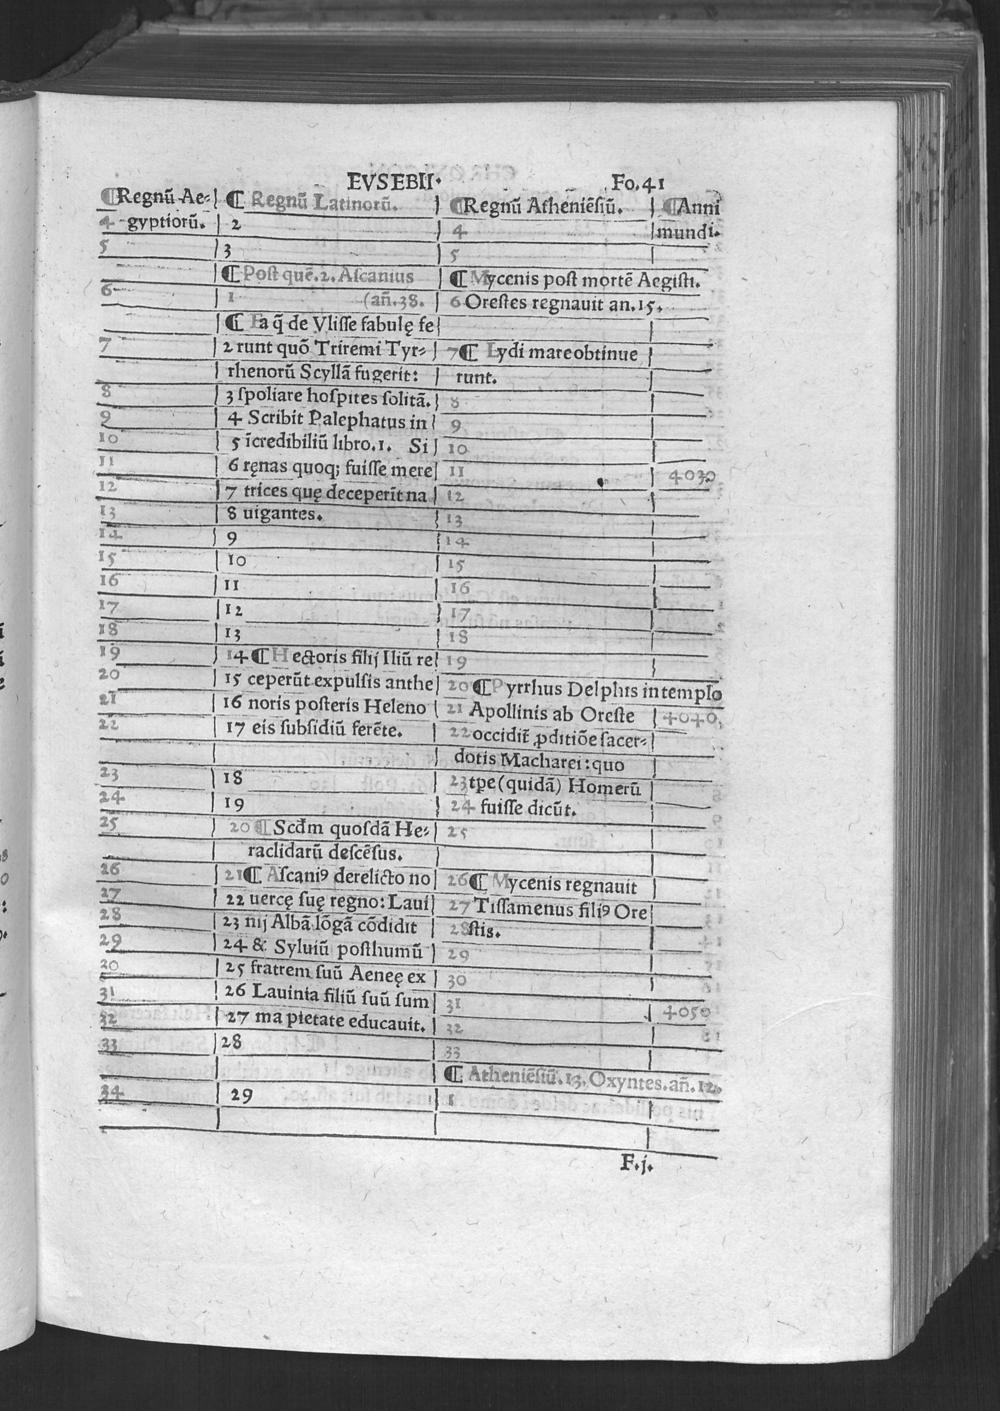 EVSEBII. Fo.41
¶Regnū Ae- ¶ Regnū Latinorū. ¶Regnū Atheniēsiū. ¶Anni
4 gyptiorū. 2 4 mundi.
5 3 5
¶Post quē.2. Ascanius ¶ Mycenis post mortē Aegisti.
6 1 (añ.38. 6 Orestes regnauit an.15.
¶ Ea q̄ de Vlisse fabulę fe
7 2 runt quō Triremi Tyr- 7¶ Lydi mare obtinue
rhenorū Scyllā fugerit: runt.
8 3 spoliare hospites solitā. 8
9 4 Scribit Palephatus in 9
10 5 īcredibiliū libro.1. Si 10
11 6 ręnas quoq; fuisse mere 11 4030
12 7 trices quę deceperīt na 12
13 8 uigantes. 13
14 9 14
15 10 15
16 11 16
17 12 17
18 13 18
19 14¶Hectoris filij Iliū re 19
20 15 ceperūt expulsis anthe 20¶Pyrrhus Delphis in templo
21 16 noris posteris Heleno 21 Apollinis ab Oreste 4040.
22 17 eis subsidiū ferēte. 22 occidit̄ ꝓditiōe sacer-
dotis Macharei: quo
23 18 23 tpe (quidā) Homerū
24 19 24 fuisse dicūt.
25 20¶Scd̄m quosdā He- 25
raclidarū descēsus.
26 21¶Ascaniꝰ derelicto no 26¶Mycenis regnauit
27 22 uercę suę regno: Laui 27 Tissamenus filiꝰ Ore
28 23 nij Albā lōgā cōdidit 28 stis.
29 24 & Syluiū posthumū 29
20 25 fratrem suū Aeneę ex 30
31 26 Lauinia filiū suū sum 31 4050
32 27 ma pietate educauit. 32
33 28 33
¶ Atheniēsiū.13. Oxyntes.añ.12.
34 29 1
F.j.